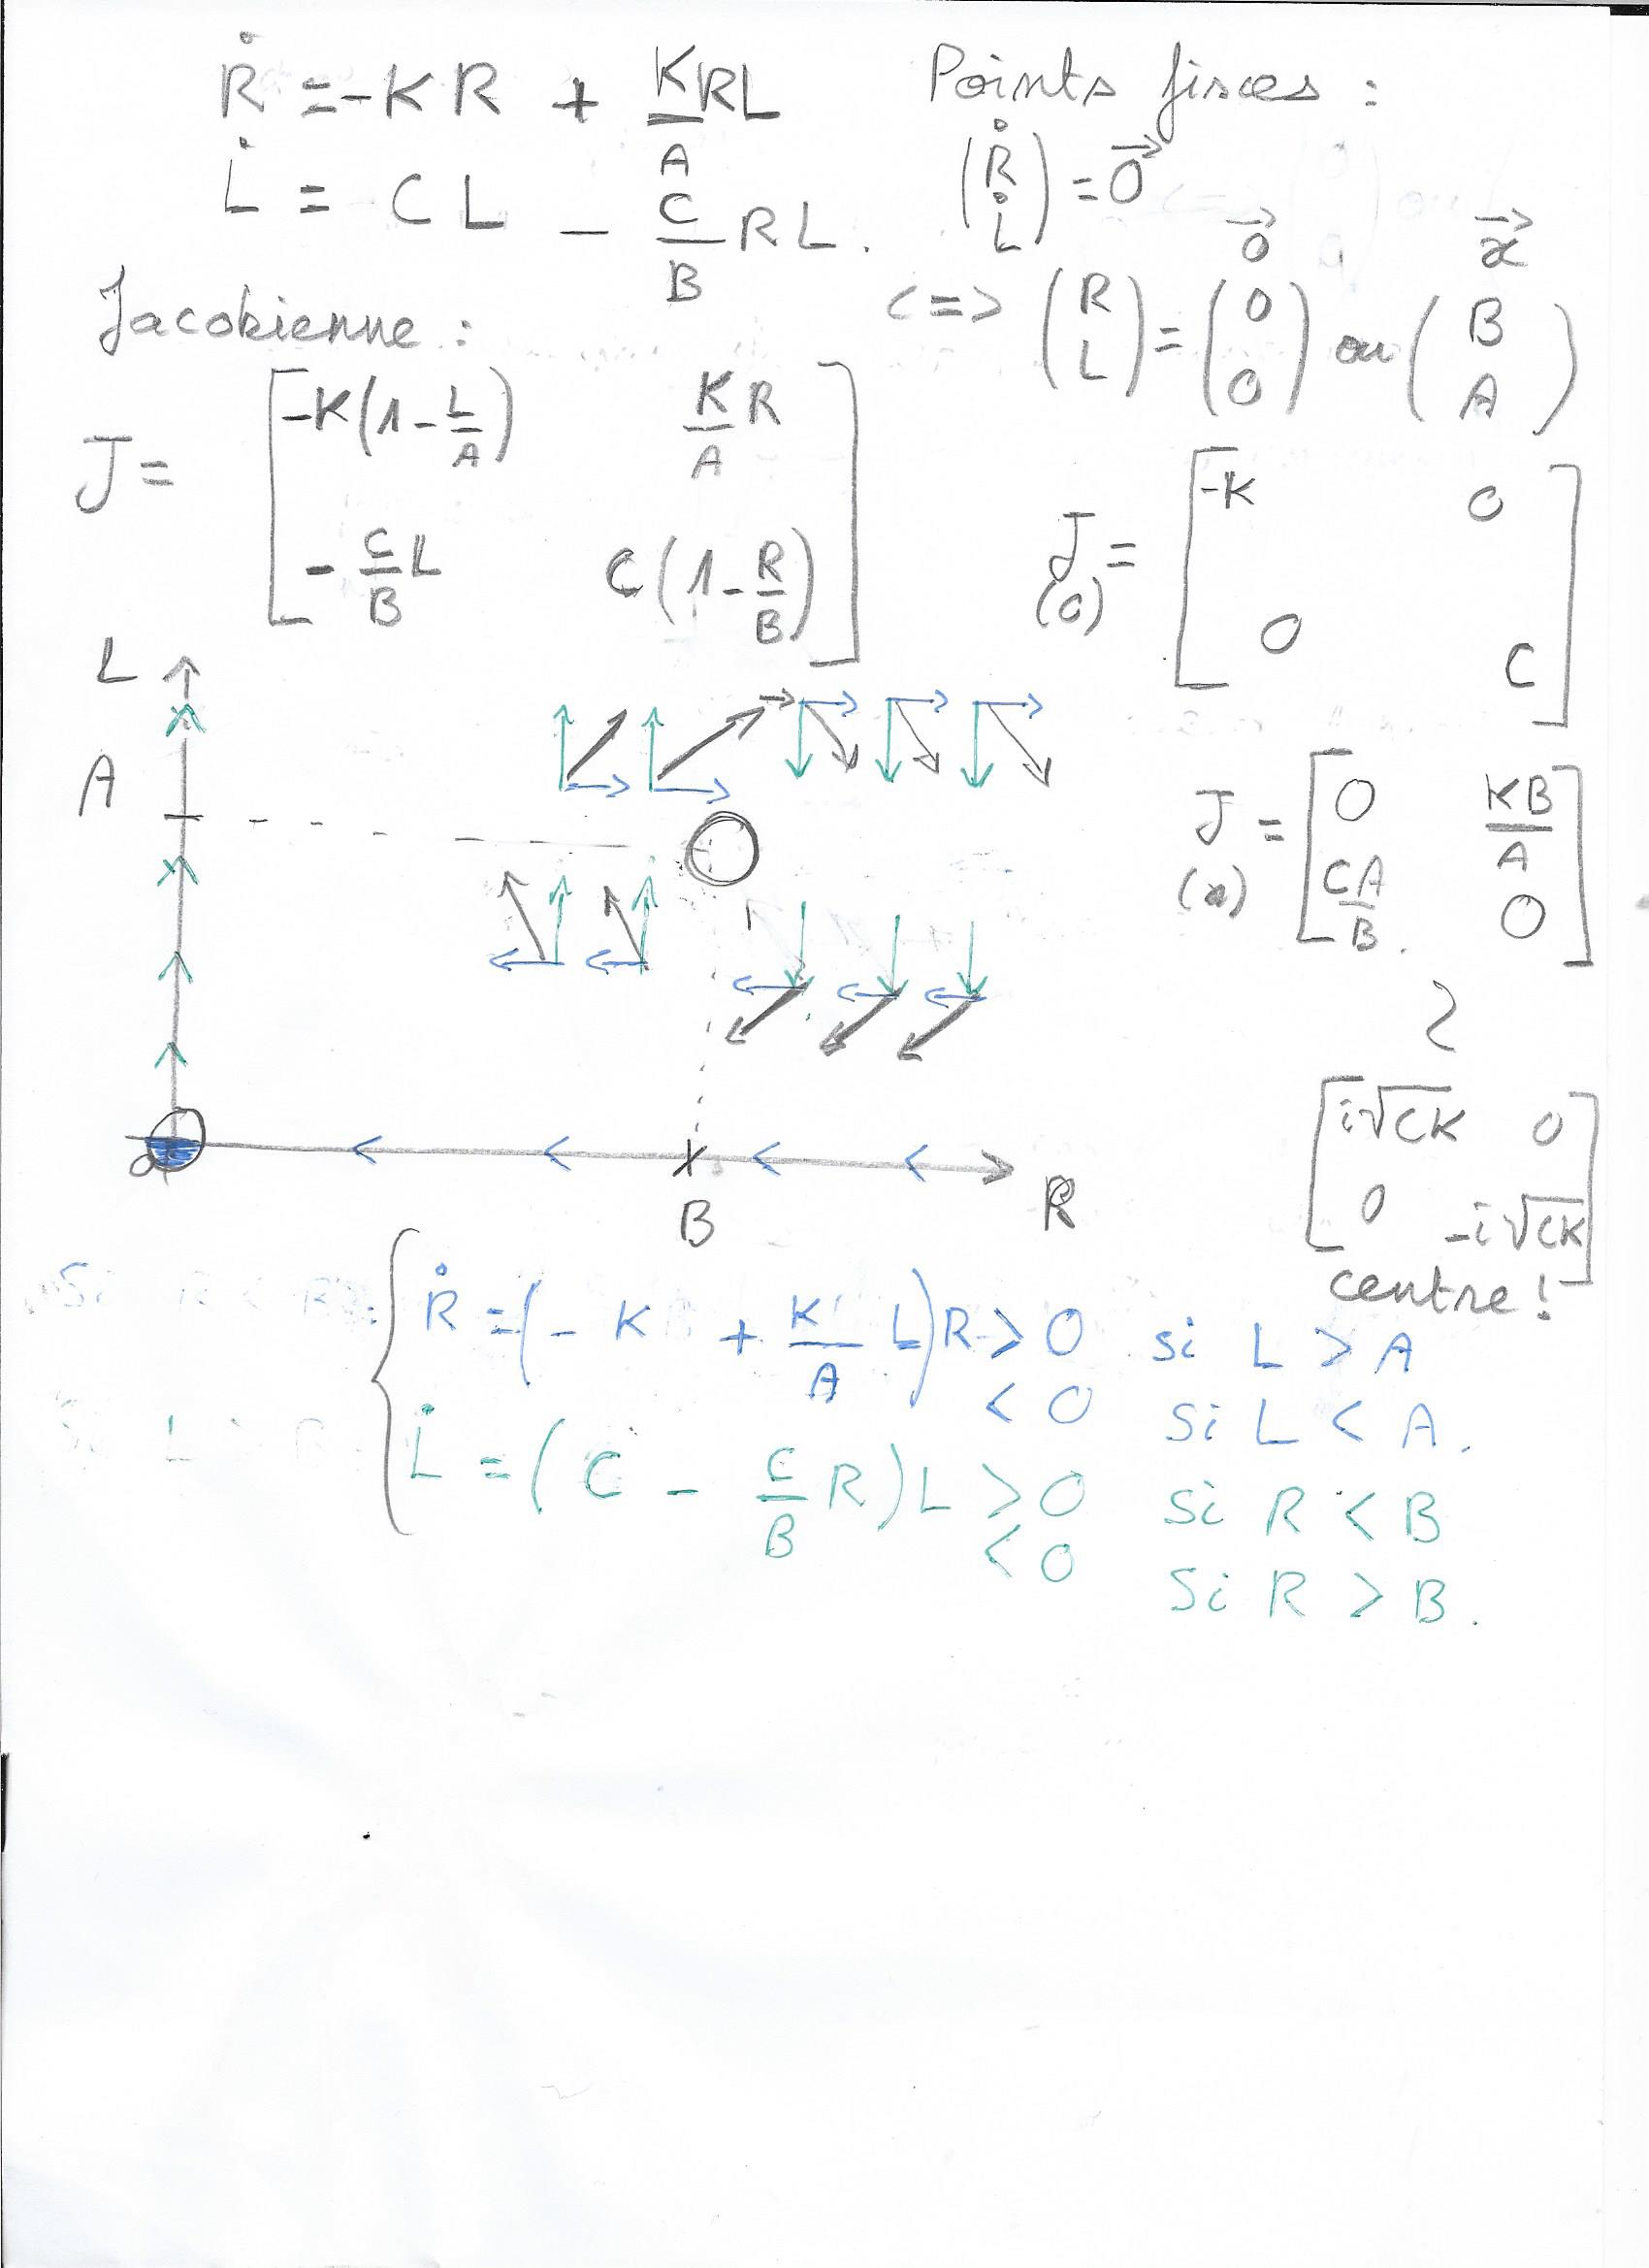 Ṙ = -KR + K/A RL
L̇ = CL - C/B RL.
Points fixes :
(Ṙ L̇) = 0⃗
<=> (R L) = (0 0) ou (B A)
0⃗ x⃗
Jacobienne :
J = [-K(1-L/A) K/A R
- C/B L C(1-R/B)]
J(0) = [-K 0
0 C]
J(x) = [0 KB/A
CA/B. 0]
~
[i√CK 0
0 -i√CK]
centre !
L
A
0
B
R
Ṙ = (-K + K/A L)R > 0 si L > A
< 0 si L < A.
L̇ = (C - C/B R)L > 0 si R < B
< 0 si R > B.